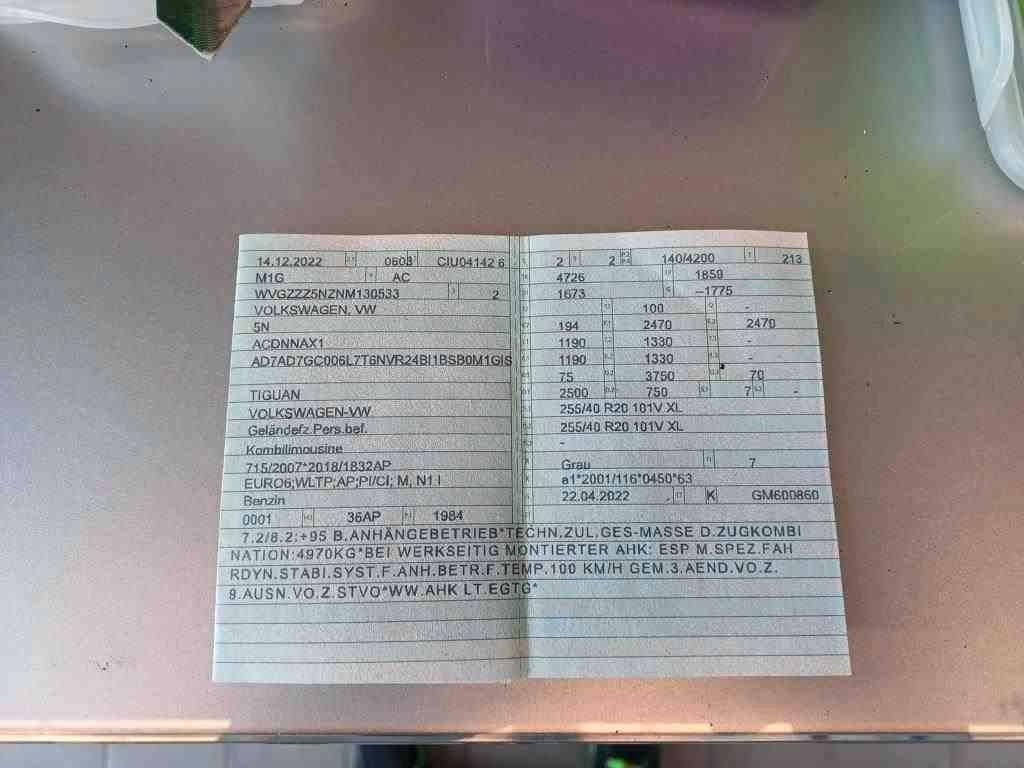 14.12.2022 0603 CIU04142 6
M1G AC
WVGZZZ5NZNM130533 2
VOLKSWAGEN, VW
5N
ACDNNAX1
AD7AD7GC006L7T6NVR24BI1BSB0M1GIS
TIGUAN
VOLKSWAGEN-VW
Geländefz.Pers.bef.
Kombilimousine
715/2007*2018/1832AP
EURO6;WLTP;AP;PI/CI; M, N1 I
Benzin
0001 36AP 1984
2 2 140/4200 213
4726 1859
1673 –1775
100 -
194 2470 2470
1190 1330 -
1190 1330 -
75 3750 70
2500 750 7 -
255/40 R20 101V XL
255/40 R20 101V XL
-
Grau 7
e1*2001/116*0450*63
22.04.2022 K GM600860
7.2/8.2:+95 B.ANHÄNGEBETRIEB*TECHN.ZUL.GES-MASSE D.ZUGKOMBI
NATION:4970KG*BEI WERKSEITIG MONTIERTER AHK: ESP M.SPEZ.FAH
RDYN.STABI.SYST.F.ANH.BETR.F.TEMP.100 KM/H GEM.3.AEND.VO.Z.
9.AUSN.VO.Z.STVO*WW.AHK LT.EGTG*